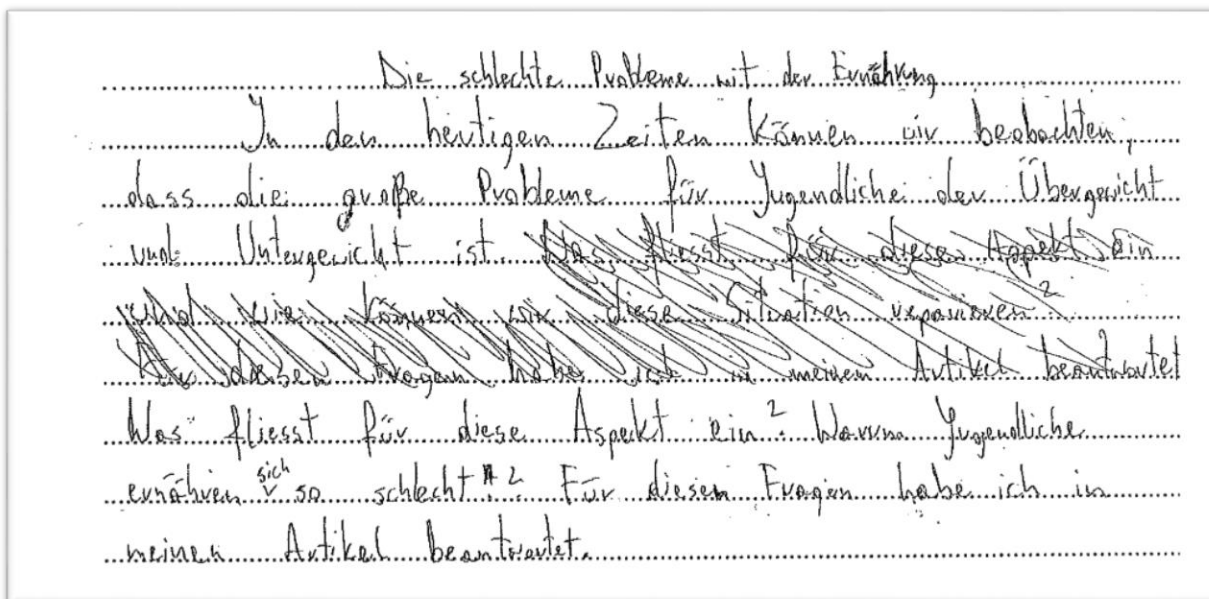 Die schlechte Probleme mit der Ernährung
In den heutigen Zeiten können wir beobachten,
dass die große Probleme für Jugendliche der Übergewicht
und Untergewicht ist. Was fliesst für diese Aspekt ein
und wie können wir diese Situation reparieren?
Für diesen Fragen habe ich in meinen Artikel beantwortet
Was fliesst für diese Aspekt ein? Warum Jugendliche
ernähren sich so schlecht? Für diesen Fragen habe ich in
meinen Artikel beantwortet.